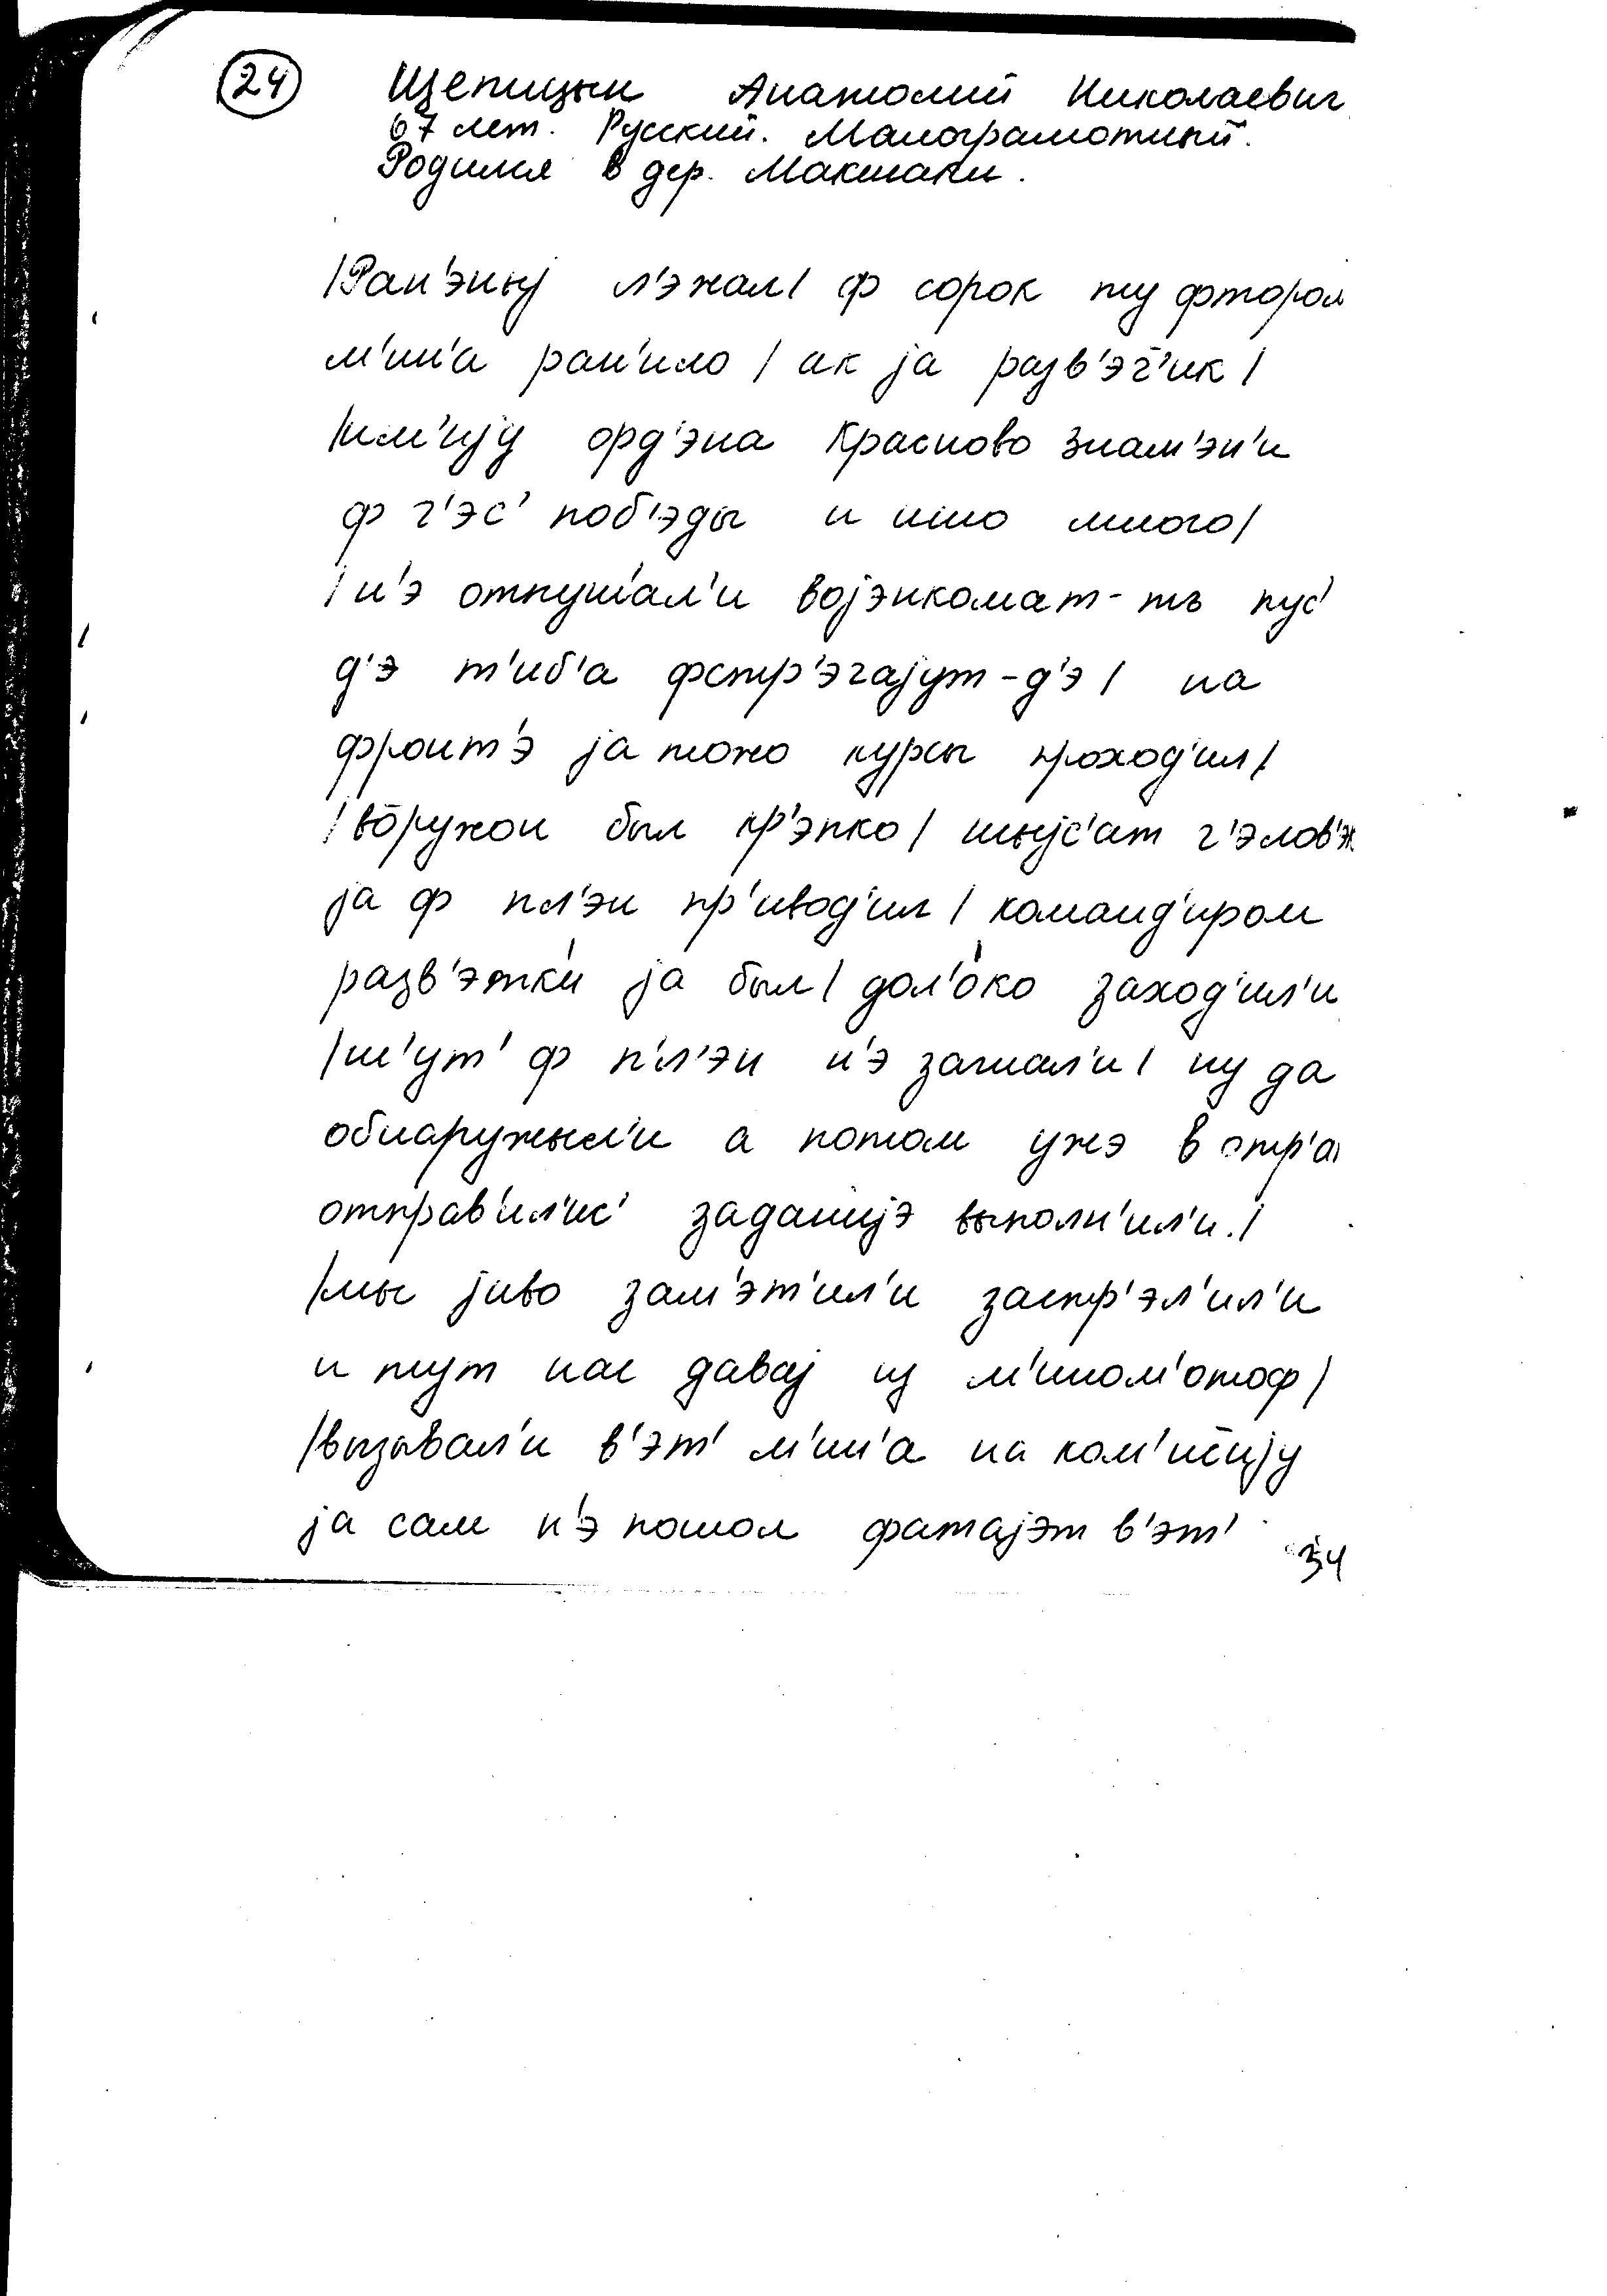 24 Щепицын Анатолий Николаевич
67 лет. Русский. Малограмотный.
Родился в дер. Макшаки.
/Ран'эный л'эжал/ ф сорок ту фтором
м'ин'а ран'ило / ак jа разв'эч'ик /
/им'иjу орд'эна Красново Знам'эн'и
ф ч'эс' поб'эды и ишо много/
/н'э отпушал'и воjэнкомат-тъ пус'
д'э т'иб'а фстр'эчаjут-д'э / на
фронт'э jа тожо курсы проход'ил/
/во̄ружон был кр'эпко/ шыjс'ат ч'элов'эк
jа ф пл'эн пр'ивод'ил / командʼиром
разв'этк'и jа был/ дал'око заход'ил'и
/ш'ут' ф п'л'эн н'э загнал'и/ ну да
обнаружыл'и а потом ужэ в отр'а
отправ'ил'ис' заданиjэ выполн'ил'и./
/мы jиво зам'эт'ил'и застр'эл'ил'и
и тут нас даваj из м'ином'отоф/
/вызывал'и в'эт' м'ин'а на ком'ис̄иjу
jа сам н'э пошол фатаjэт в'эт'
34